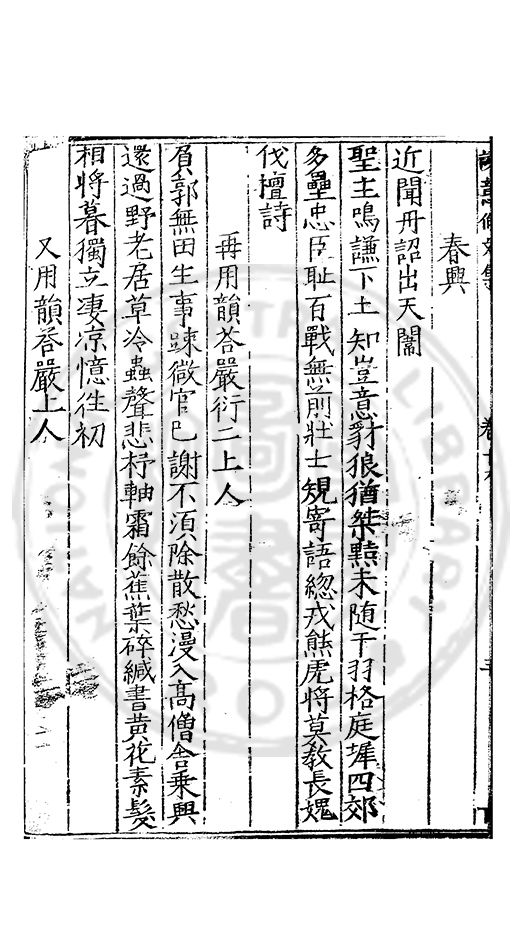 春興
近聞丹詔出天閽
聖主鳴謙下土知豈意豺狼猶桀黠未随干羽格庭墀四郊
多壘忠臣耻百戰無前壯士規寄語緫戎熊虎將莫教長媿
伐檀詩
再用韻荅嚴衍二上人
負郭無田生事踈微官已謝不湏除散愁漫入髙僧舍乗興
還過野老居草冷蟲聲悲杼軸霜餘蕉葉碎緘書黄花素髮
相將暮獨立凄凉憶徃初
又用韻荅嚴上人